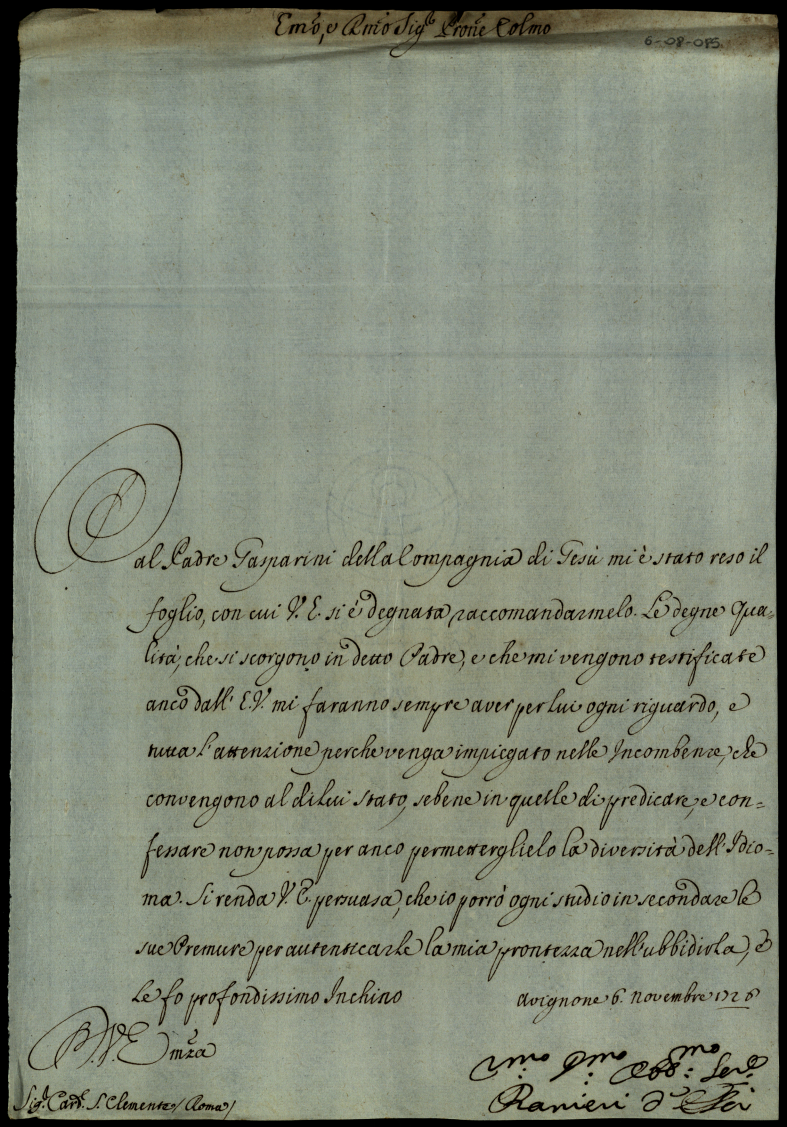 Emo, e Rmo Sigr Prone Colmo
6-08-085.
Dal Padre Gasparini della Compagnia di Gesù mi è stato reso il
foglio, con cui V. E. si è degnata raccomandarmelo. Le degne Qua=
lità, che si scorgono in detto Padre, e che mi vengono testificate
anco dall' E.V. mi faranno sempre aver per lui ogni riguardo, e
tutta l'attenzione perche venga impiegato nelle Incombenze, che
convengono al di lui stato, sebene in quelle di predicare, e con=
fessare non possa per anco permetterglielo la diversità dell'Idio=
ma. Si renda V. E. persuasa, che io porrò ogni studio in secondare le
sue Premure per autenticarle la mia prontezza nell'ubbidirla, e
Le fo profondissimo Inchino
Avignone 6. Novembre 1726
D. V. E. mza
Vmo Dmo Obbmo Serre
Sigr Card. S. Clemente / Roma /
Ranieri d'Elci